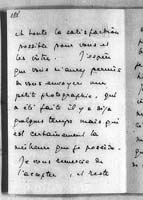 et toute la satisfaction
possible pour vous et
les vôtres. J'espère
que vous m'aurez permis
de vous envoyer un
petit photographie, qui
a été faite il y a déjà
quelques temps mais qui
est certainement la
meilleure que je possède.
Je vous remercie de
l'accepter, et reste